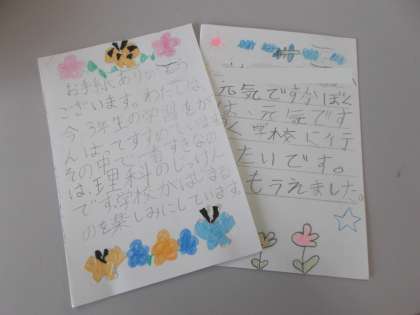 お手紙ありがとう
ございます。わたしは、
今、3年生の学習をが
んばってすすめています。
その中で一番すきなの
は理科のじっけん
です。学校がはじまる
のを楽しみにしています。
元気ですかぼく
は、元気です
く学校に行
たいです。
もうえました。